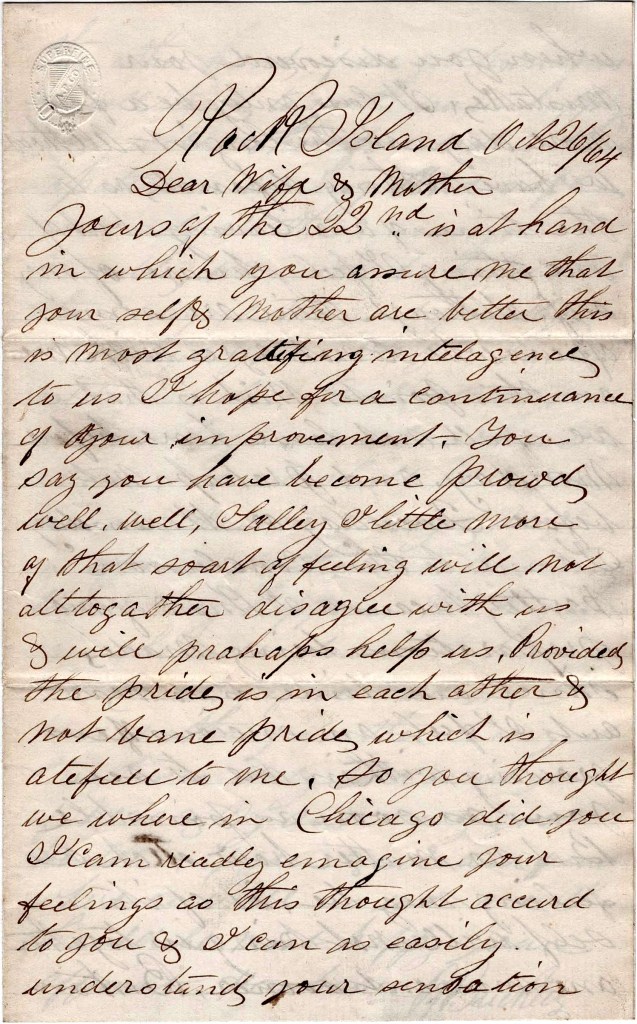 Rock Island Oct 26/64
Dear Wife & Mother
Yours of the 22nd is at hand
in which you assure me that
your self & Mother are better this
is most gratifing intelagence
to us I hope for a continuance
of your improvement. You
say you have become proud
well, well, Salley I little more
of that soart of feeling will not
alltogather disagree with us
& will prahaps help us, Provided
the pride is in each ather &
not vane pride which is
atefull to me. So you thought
we where in Chicago did you
I can readly emagine your
feelings as this thought accurd
to you & I can as easily
understand your sensation